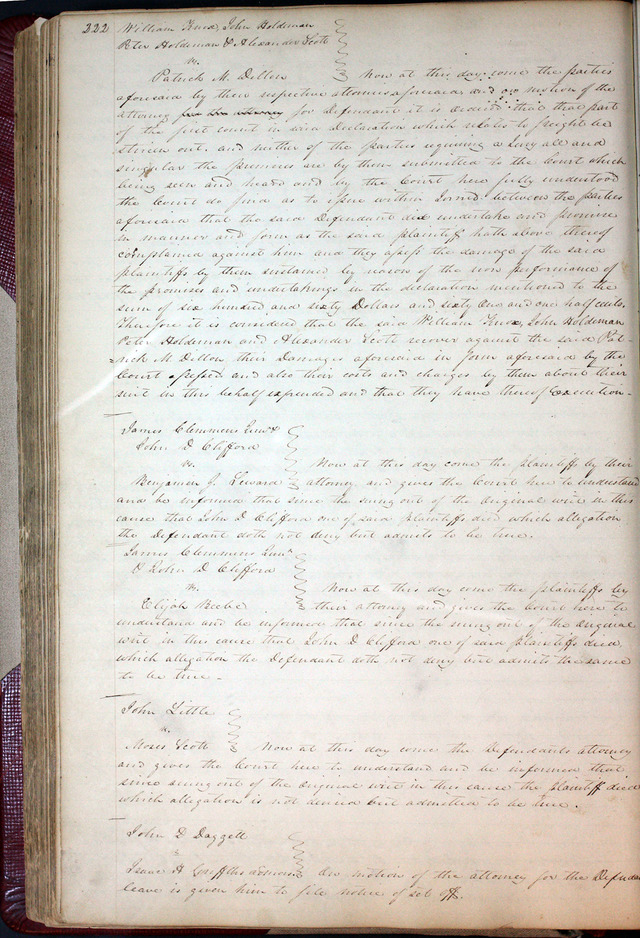 222 William Knox, John Holdeman
Peter Holdeman & Alexander Scott
vs.
Patrick M. Dillon Now at this day come the parties
aforesaid by their respective attornies aforesaid and on motion of the
attorney for Defendant it is ordered that that part
of the first count in said declaration which relates to freight be
striken out. and neither of the parties requiring a Jury all and
singular the premises are by them submitted to the Court which
being seen and heard and by the Court here fully understood
the Court do find as to issue within Joined between the parties
aforesaid that the said Defendant did undertake and promise
in manner and form as the said plaintiff hath above thereof
complained against him and they assess the damage of the said
plaintiffs by them sustained by reason of the non performance of
the promises and undertakings in the declaration mentioned to the
sum of six hundred and sixty Dollars and sixty two and one half cents.
Therefore it is considered that the said William Knox, John Holdeman
Peter Holdeman and Alexander Scott recover against the said Pat-
=rick M. Dillon their Damages aforesaid in form aforesaid by the
Court assessed and also their costs and charges by them about their
suit in this behalf expended and that they have thereof Execution.
James Clemmens Junr &
John D Clifford
vs.
Now at this day come the plaintiffs by their
Benjamin J. Seward attorney and gives the Court here to understand
and be informed that since the suing out of the Original writ in this
cause that John D Clifford one of said plaintiffs died which allegation
the Defendant doth not deny but admits to be true.
James Clemmens Junr
& John D Clifford
vs. Now at this day come the plaintiffs by
Elijah Beebe their attorney and gives the Court here to
understand and be informed that since the suing out of the Original
writ in this cause that John D Clifford one of said plaintiffs died,
which allegation the Defendant doth not deny but admits the same
to be true.
John Little
vs.
Moses Scott Now at this day come the Defendants attorney
and gives the Court here to understand and be informed that
since suing out of the Original writ in this cause the plaintiff died
which allegation is not denied but admitted to be true.
John D Daggett
vs
Isaac A On motion of the attorney for the Defendant
leave is given him to file notice of set off.